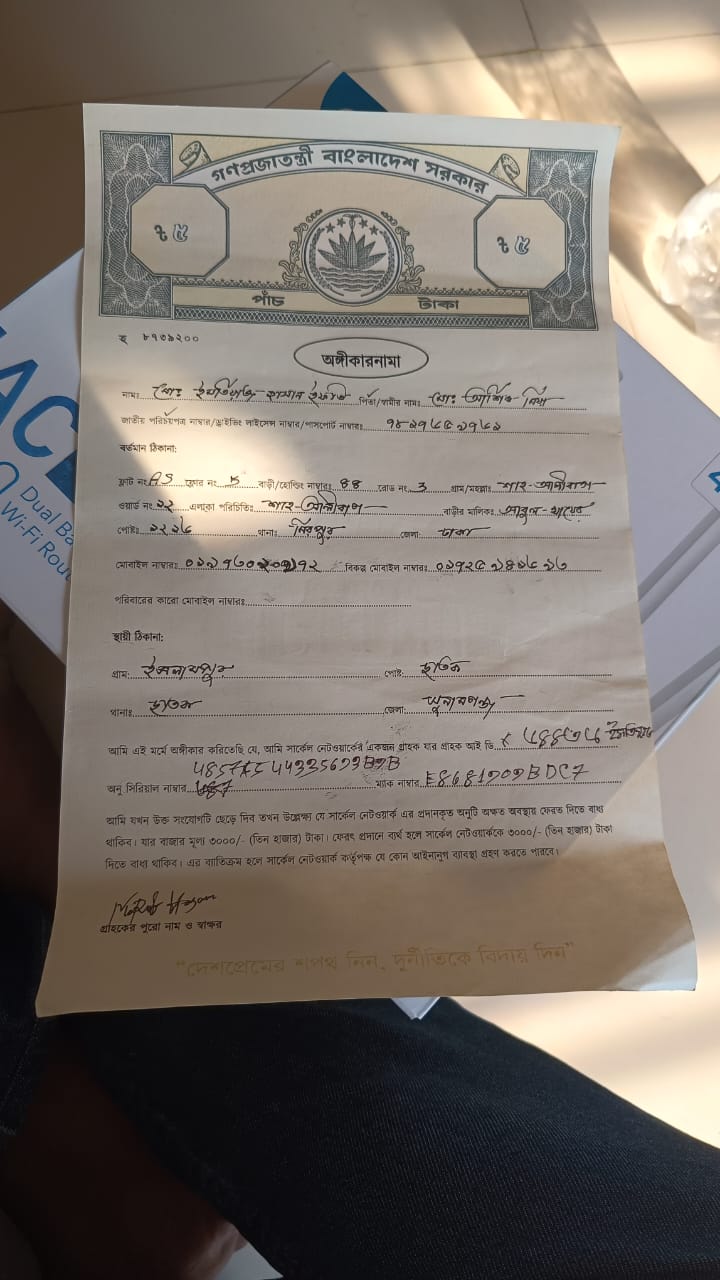 গণপ্রজাতন্ত্রী বাংলাদেশ সরকার
৳ ৫
৳ ৫
পাঁচ টাকা
৮৭৩৯২০০
অঙ্গীকারনামা
নাম: মোঃ কামাল পিতা/স্বামীর নাম: মোঃ আশিক মিয়া
জাতীয় পরিচয়পত্র নাম্বার/ড্রাইভিং লাইসেন্স নাম্বার/পাসপোর্ট নাম্বারঃ
বর্তমান ঠিকানা:
ফ্লাট নং A5 ফ্লোর নং 5 বাড়ী/হোল্ডিং নাম্বারঃ 44 রোড নং 3 গ্রাম/মহল্লাঃ শাহ-আলীবাগ
ওয়ার্ড নং ১২ এলাকা পরিচিতিঃ শাহ-আলীবাগ বাড়ীর মালিকঃ আবুল
পোষ্টঃ ১২১৬ থানাঃ মিরপুর জেলা: ঢাকা
মোবাইল নাম্বারঃ বিকল্প মোবাইল নাম্বারঃ
পরিবারের কারো মোবাইল নাম্বারঃ
স্থায়ী ঠিকানা:
গ্রাম: ইসলামপুর পোষ্ট: ছাতক
থানাঃ ছাতক জেলা: সুনামগঞ্জ
আমি এই মর্মে অঙ্গীকার করিতেছি যে, আমি সার্কেল নেটওয়ার্কের একজন গ্রাহক যার গ্রাহক আই ডি
অনু সিরিয়াল নাম্বার ম্যাক নাম্বার
আমি যখন উক্ত সংযোগটি ছেড়ে দিব তখন উল্লেক্ষ্য যে সার্কেল নেটওয়ার্ক এর প্রদানকৃত অনুটি অক্ষত অবস্থায় ফেরত দিতে বাধ্য
থাকিব। যার বাজার মূল্য ৩০০০/- (তিন হাজার) টাকা। ফেরৎ প্রদানে ব্যর্থ হলে সার্কেল নেটওয়ার্ককে ৩০০০/- (তিন হাজার) টাকা
দিতে বাধ্য থাকিব। এর ব্যাতিক্রম হলে সার্কেল নেটওয়ার্ক কর্তৃপক্ষ যে কোন আইনানুগ ব্যাবস্থা গ্রহণ করতে পারবে।
গ্রাহকের পুরো নাম ও স্বাক্ষর
"দেশপ্রেমের শপথ নিন, দুর্নীতিকে বিদায় দিন"
AC
Dual Ba
Wi-Fi Rou